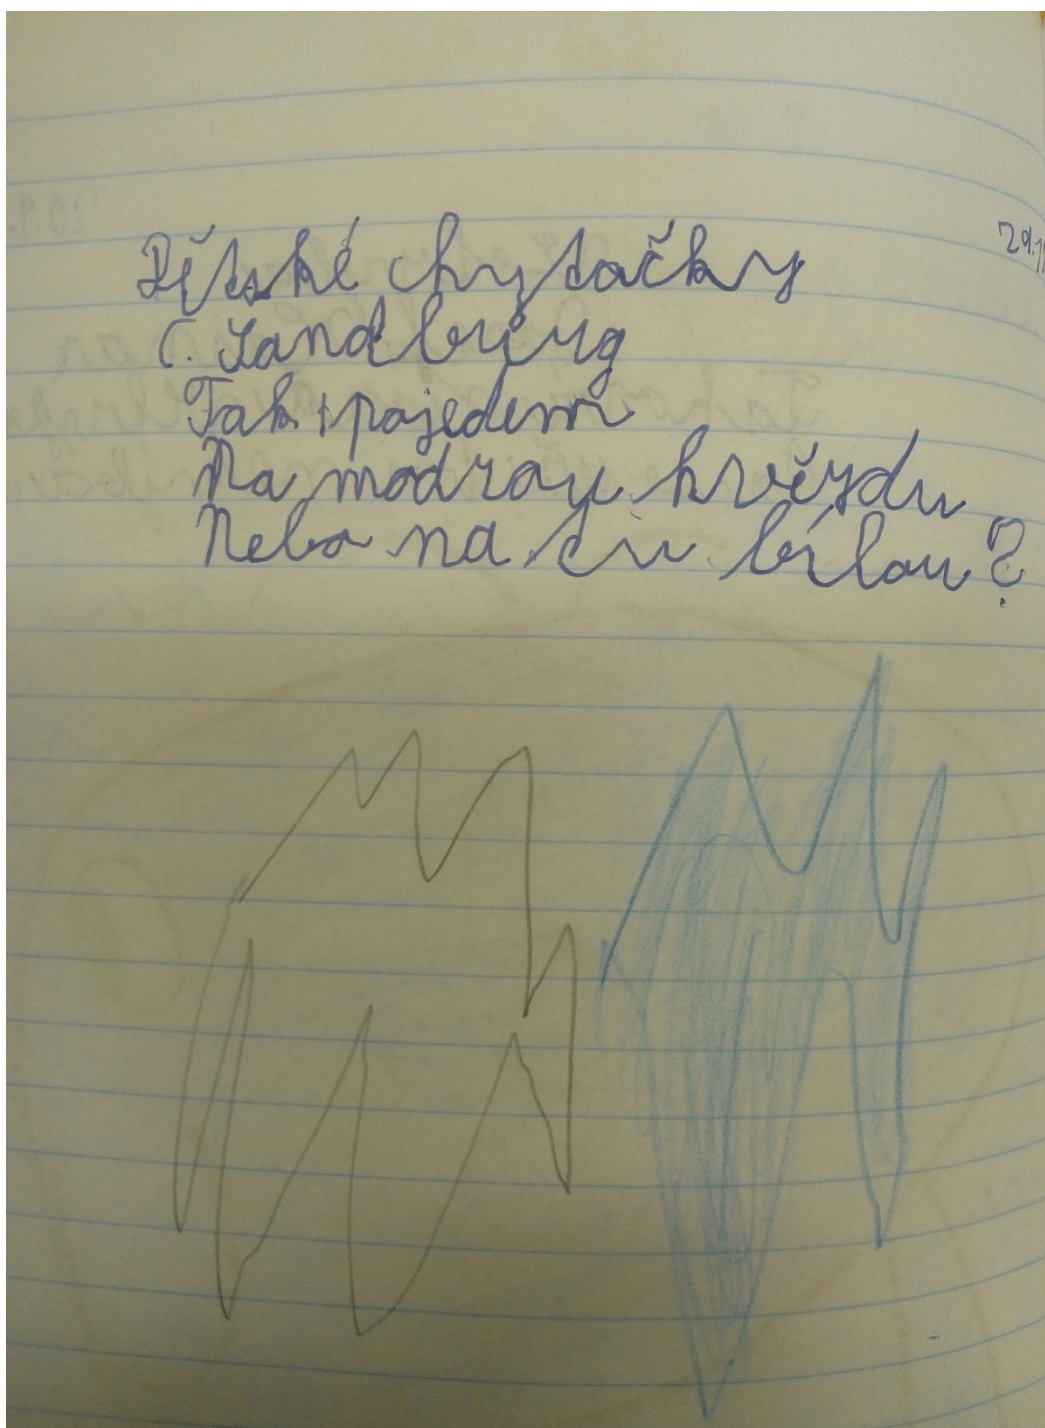 29.11
Dětské chytačky
C. Sandburg
Tak, pojedem
Na modrou hvězdu
Nebo na tu bílou?